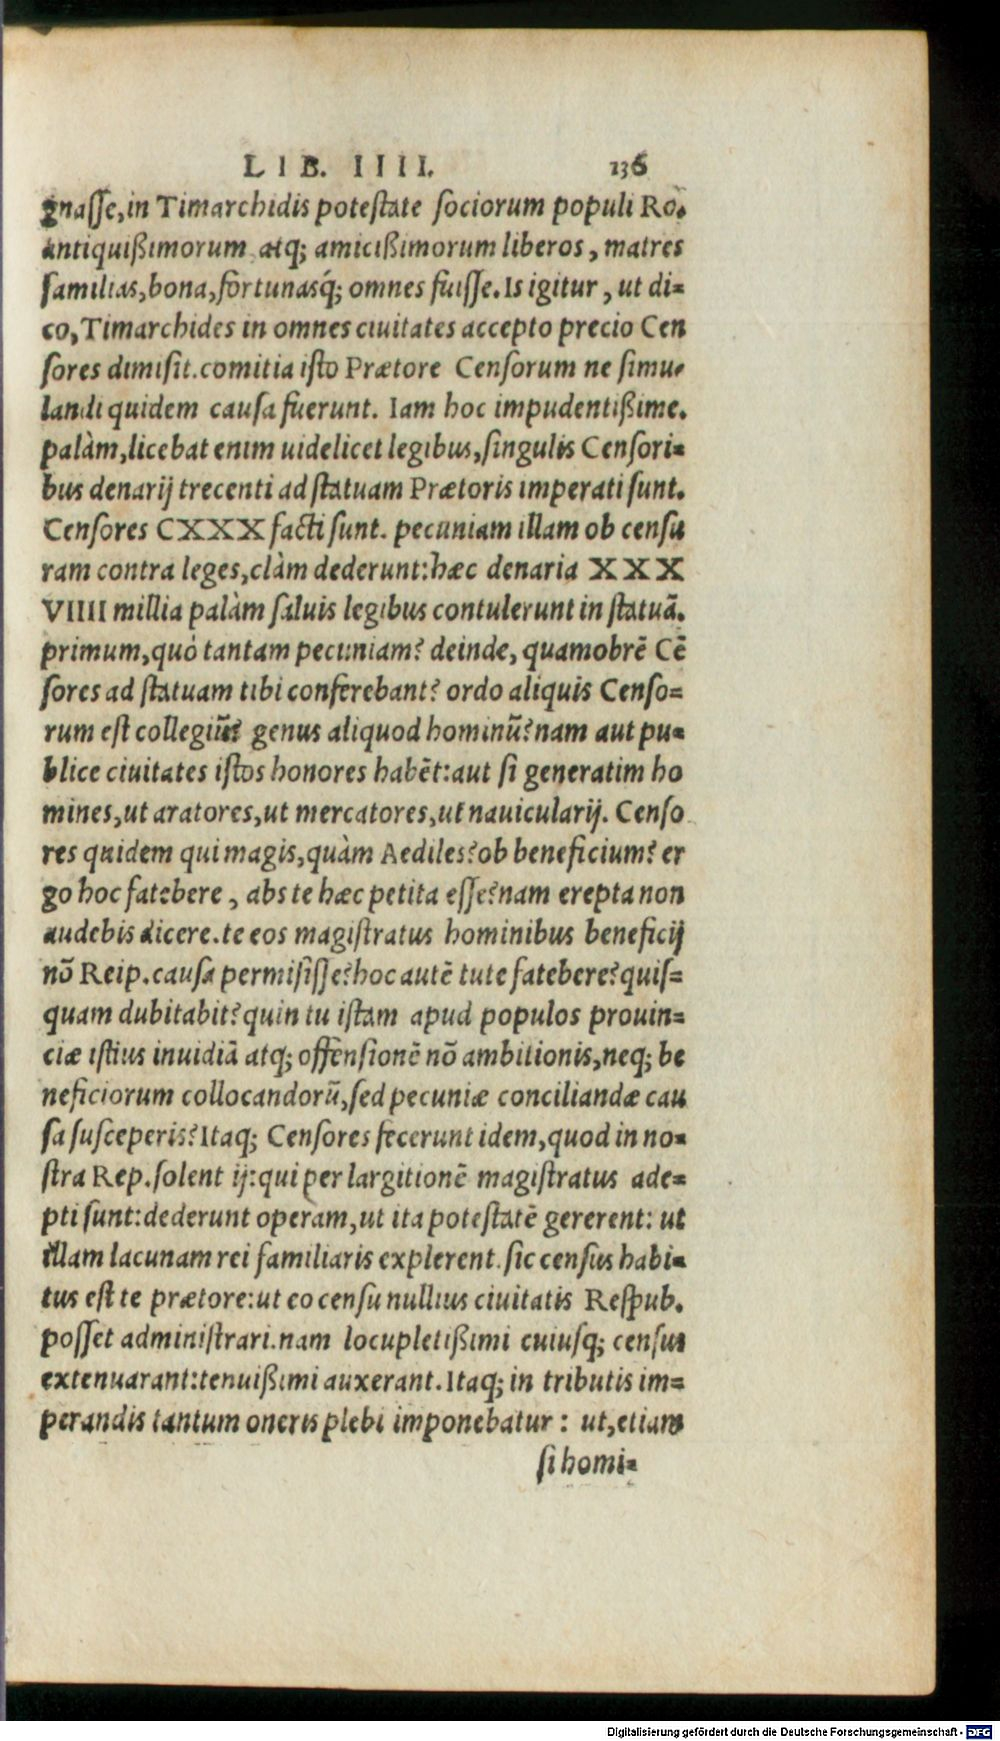 LIB. IIII. 136
gnasse, in Timarchidis potestate sociorum populi Ro.
antiquißimorum atq; amicißimorum liberos, matres
familias, bona, fortunasq́; omnes fuisse. Is igitur, ut di=
co, Timarchides in omnes ciuitates accepto precio Cen
sores dimisit. comitia isto Prætore Censorum ne simu=
landi quidem causa fuerunt. Iam hoc impudentißime.
palàm, licebat enim uidelicet legibus, singulis Censori=
bus denarij trecenti ad statuam Prætoris imperati sunt.
Censores CXXX facti sunt. pecuniam illam ob censu
ram contra leges, clàm dederunt: hæc denaria XXX
VIIII millia palàm saluis legibus contulerunt in statuā.
primum, quò tantam pecuniam? deinde, quamobrē Cē
sores ad statuam tibi conferebant? ordo aliquis Censo=
rum est collegiū? genus aliquod hominū? nam aut pu=
blice ciuitates istos honores habēt: aut si generatim ho
mines, ut aratores, ut mercatores, ut nauicularij. Censo
res quidem qui magis, quàm Aediles? ob beneficium? er
go hoc fatebere, abs te hæc petita esse? nam erepta non
audebis dicere. te eos magistratus hominibus beneficij
nō Reip. causa permisisse? hoc autē tute fatebere? quis=
quam dubitabit? quin tu istam apud populos prouin=
ciæ istius inuidiā atq; offensionē nō ambitionis, neq; be
neficiorum collocandorū, sed pecuniæ conciliandæ cau
sa susceperis? Itaq; Censores fecerunt idem, quod in no=
stra Rep. solent ij: qui per largitionē magistratus ade=
pti sunt: dederunt operam, ut ita potestatē gererent: ut
illam lacunam rei familiaris explerent. sic census habi=
tus est te prætore: ut eo censu nullius ciuitatis Respub.
posset administrari. nam locupletißimi cuiusq; census
extenuarant: tenuißimi auxerant. Itaq; in tributis im=
perandis tantum oneris plebi imponebatur: ut, etiam
si homi=
Digitalisierung gefördert durch die Deutsche Forschungsgemeinschaft - DFG